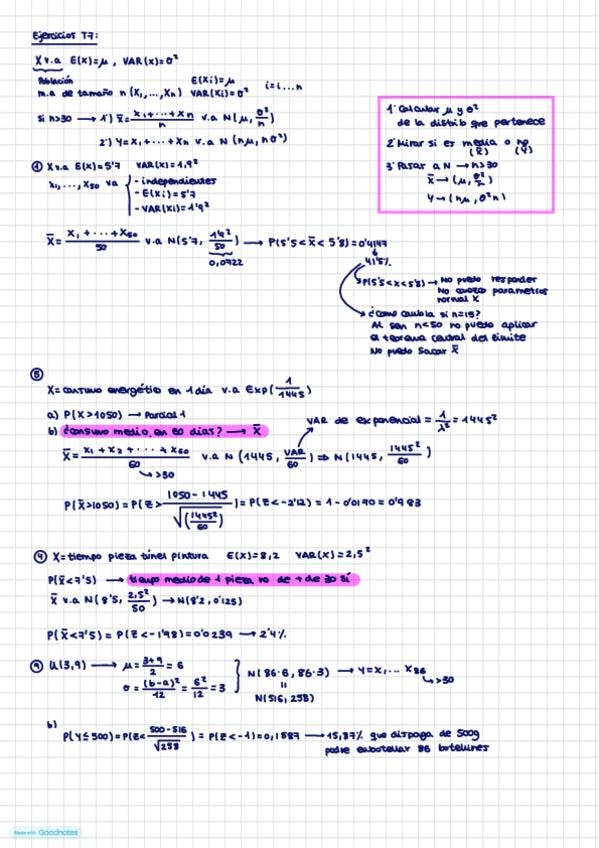 Ejercicios T7:
X v.a E(X)=μ, VAR(X)=σ²
Población
E(Xi)=μ
m.a de tamaño n (X₁,...,Xn) VAR(Xi)=σ² i=i...n
si n>30 → 1') X̄ = (X₁+···+Xn)/n v.a N(μ, σ²/n)
2') Y = X₁+···+Xn v.a N(nμ, nσ²)
1' Calcular μ y σ²
de la distrib que pertenece
2' Mirar si es media o no
(X̄) (Y)
3' Pasar a N → n>30
X̄ → (μ, σ²/n)
Y → (nμ, σ²n)
① X v.a E(X)=5'7 VAR(X)=1,9²
X₁,..., X50 va { - independientes
- E(Xi)=5'7
- VAR(Xi)=1'9²
X̄ = (X₁+···+X50)/50 v.a N(5'7, 1'9²/50) → P(5'5<X̄<5'8)=0'4147
0,0722
41'5%
P(5'5<X<5'8) → No puedo responder
No conozco parametros
normal X
¿Como cambia si n=15?
Al ser n<50 no puedo aplicar
el teorema central del limite
No puedo sacar X̄
⑤
X=consumo energético en 1 día v.a Exp(1/1445)
a) P(X>1050) → Parcial 1
b) ¿consumo medio en 60 dias? → X̄
VAR de exponencial = 1/λ² = 1445²
X̄ = (X₁+X₂+···+X60)/60 v.a N(1445, VAR/60) ⇒ N(1445, 1445²/60)
>30
P(X̄>1050)=P(Z> (1050-1445)/√(1445²/60))=P(Z<-2'12)=1-0'0170=0'983
④ X=tiempo pieza túnel pintura E(X)=8,2 VAR(X)=2,5²
P(X̄<7'5) → tiempo medio de 1 pieza no de + de 30 sí
X̄ v.a N(8'5, 2,5²/50) → N(8'2, 0'125)
P(X̄<7'5)=P(Z<-1'98)=0'0239 → 2'4%
⑨ U(3,9) → μ = (3+9)/2 = 6
σ = (b-a)²/12 = 6²/12 = 3 } N(86·6, 86·3) → Y=X₁... X86
>30
=
N(516, 258)
b)
P(Y≤500)=P(Z< (500-516)/√258)=P(Z<-1)=0,1587 → 15,87% que disponga de 500g
podre embotellar 86 botellines
Made with Goodnotes